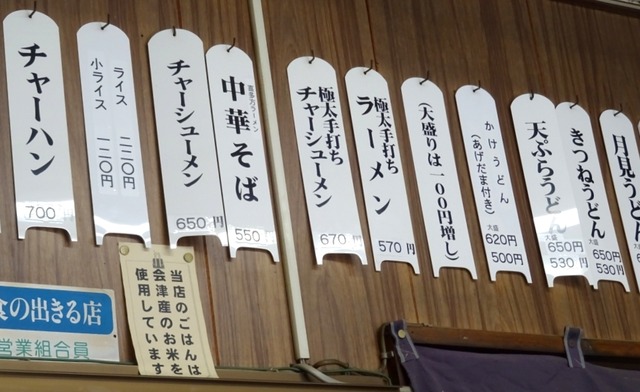 チャーハン
700円
ライス 二二〇円
小ライス 一二〇円
チャーシューメン
650円
喜多方ラーメン
中華そば
550円
極太手打ち
チャーシューメン
670円
極太手打ち
ラーメン
570円
(大盛りは一〇〇円増し)
かけうどん
(あげだま付き)
大盛
620円
500円
天ぷらうどん
大盛
650円
530円
きつねうどん
大盛
650円
530円
月見うどん
当店のごはんは
会津産のお米を
使用しています
食の出きる店
営業組合員